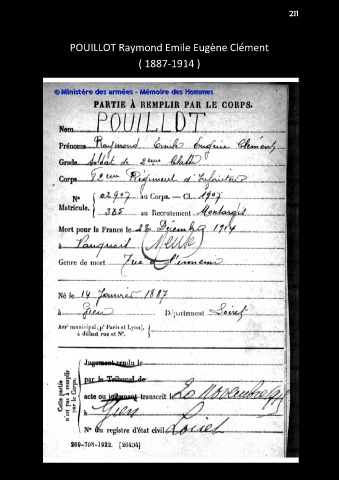 211
POUILLOT Raymond Emile Eugène Clément
( 1887-1914 )
© Ministère des armées - Mémoire des Hommes
PARTIE À REMPLIR PAR LE CORPS.
Nom POUILLOT
Prénoms Raymond Emile Eugène Clément
Grade Soldat de 2eme Classe
Corps Régiment d'Infanterie
N° 02907 au Corps. — Cl. 1907
Matricule. 335 au Recrutement Montargis
Mort pour la France le Décembre 1914
à Vauquois (Meuse)
Genre de mort Tué à l'ennemi
Né le 14 Janvier 1887
à Gien Département Loiret
Arr' municipal (p' Paris et Lyon),
à défaut rue et N°.
Cette partie
n'est pas à remplir
par le Corps.
Jugement rendu le
par le Tribunal de
acte ou jugement transcrit le 20 Novembre
à Gien
N° du registre d'état civil Loiret
269-708-1922. [26434]